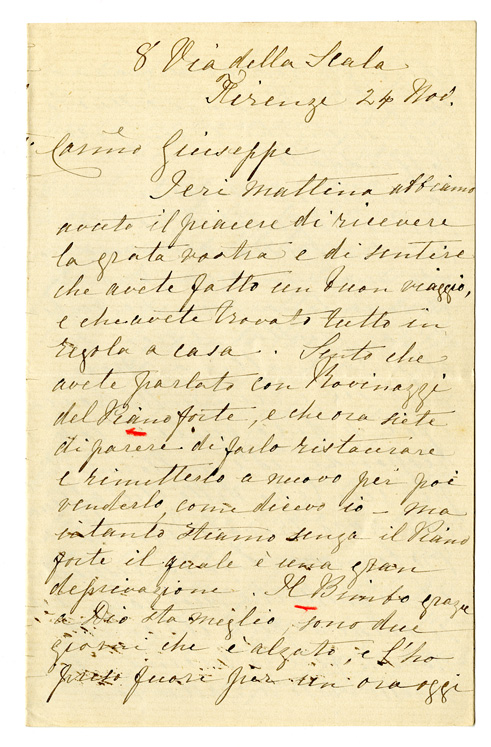 8 Via della Scala
Firenze 24 Nov.
Carmo Giuseppe
Ieri mattina abbiamo
avuto il piacere di ricevere
la grata vostra e di sentire
che avete fatto un buon viaggio,
e che avete trovato tutto in
regola a casa. Sento che
avete parlato con Rovinazzi
del Pianoforte, e che ora siete
di parere di farlo ristaurare
e rimetterlo a nuovo per poi
venderlo, come dicevo io – ma
intanto stiamo senza il Piano
forte il quale è una gran
deprivazione. Il Bimbo grazie
a Dio sta meglio, sono due
giorni che è alzato, e l'ho
preso fuori per un ora oggi